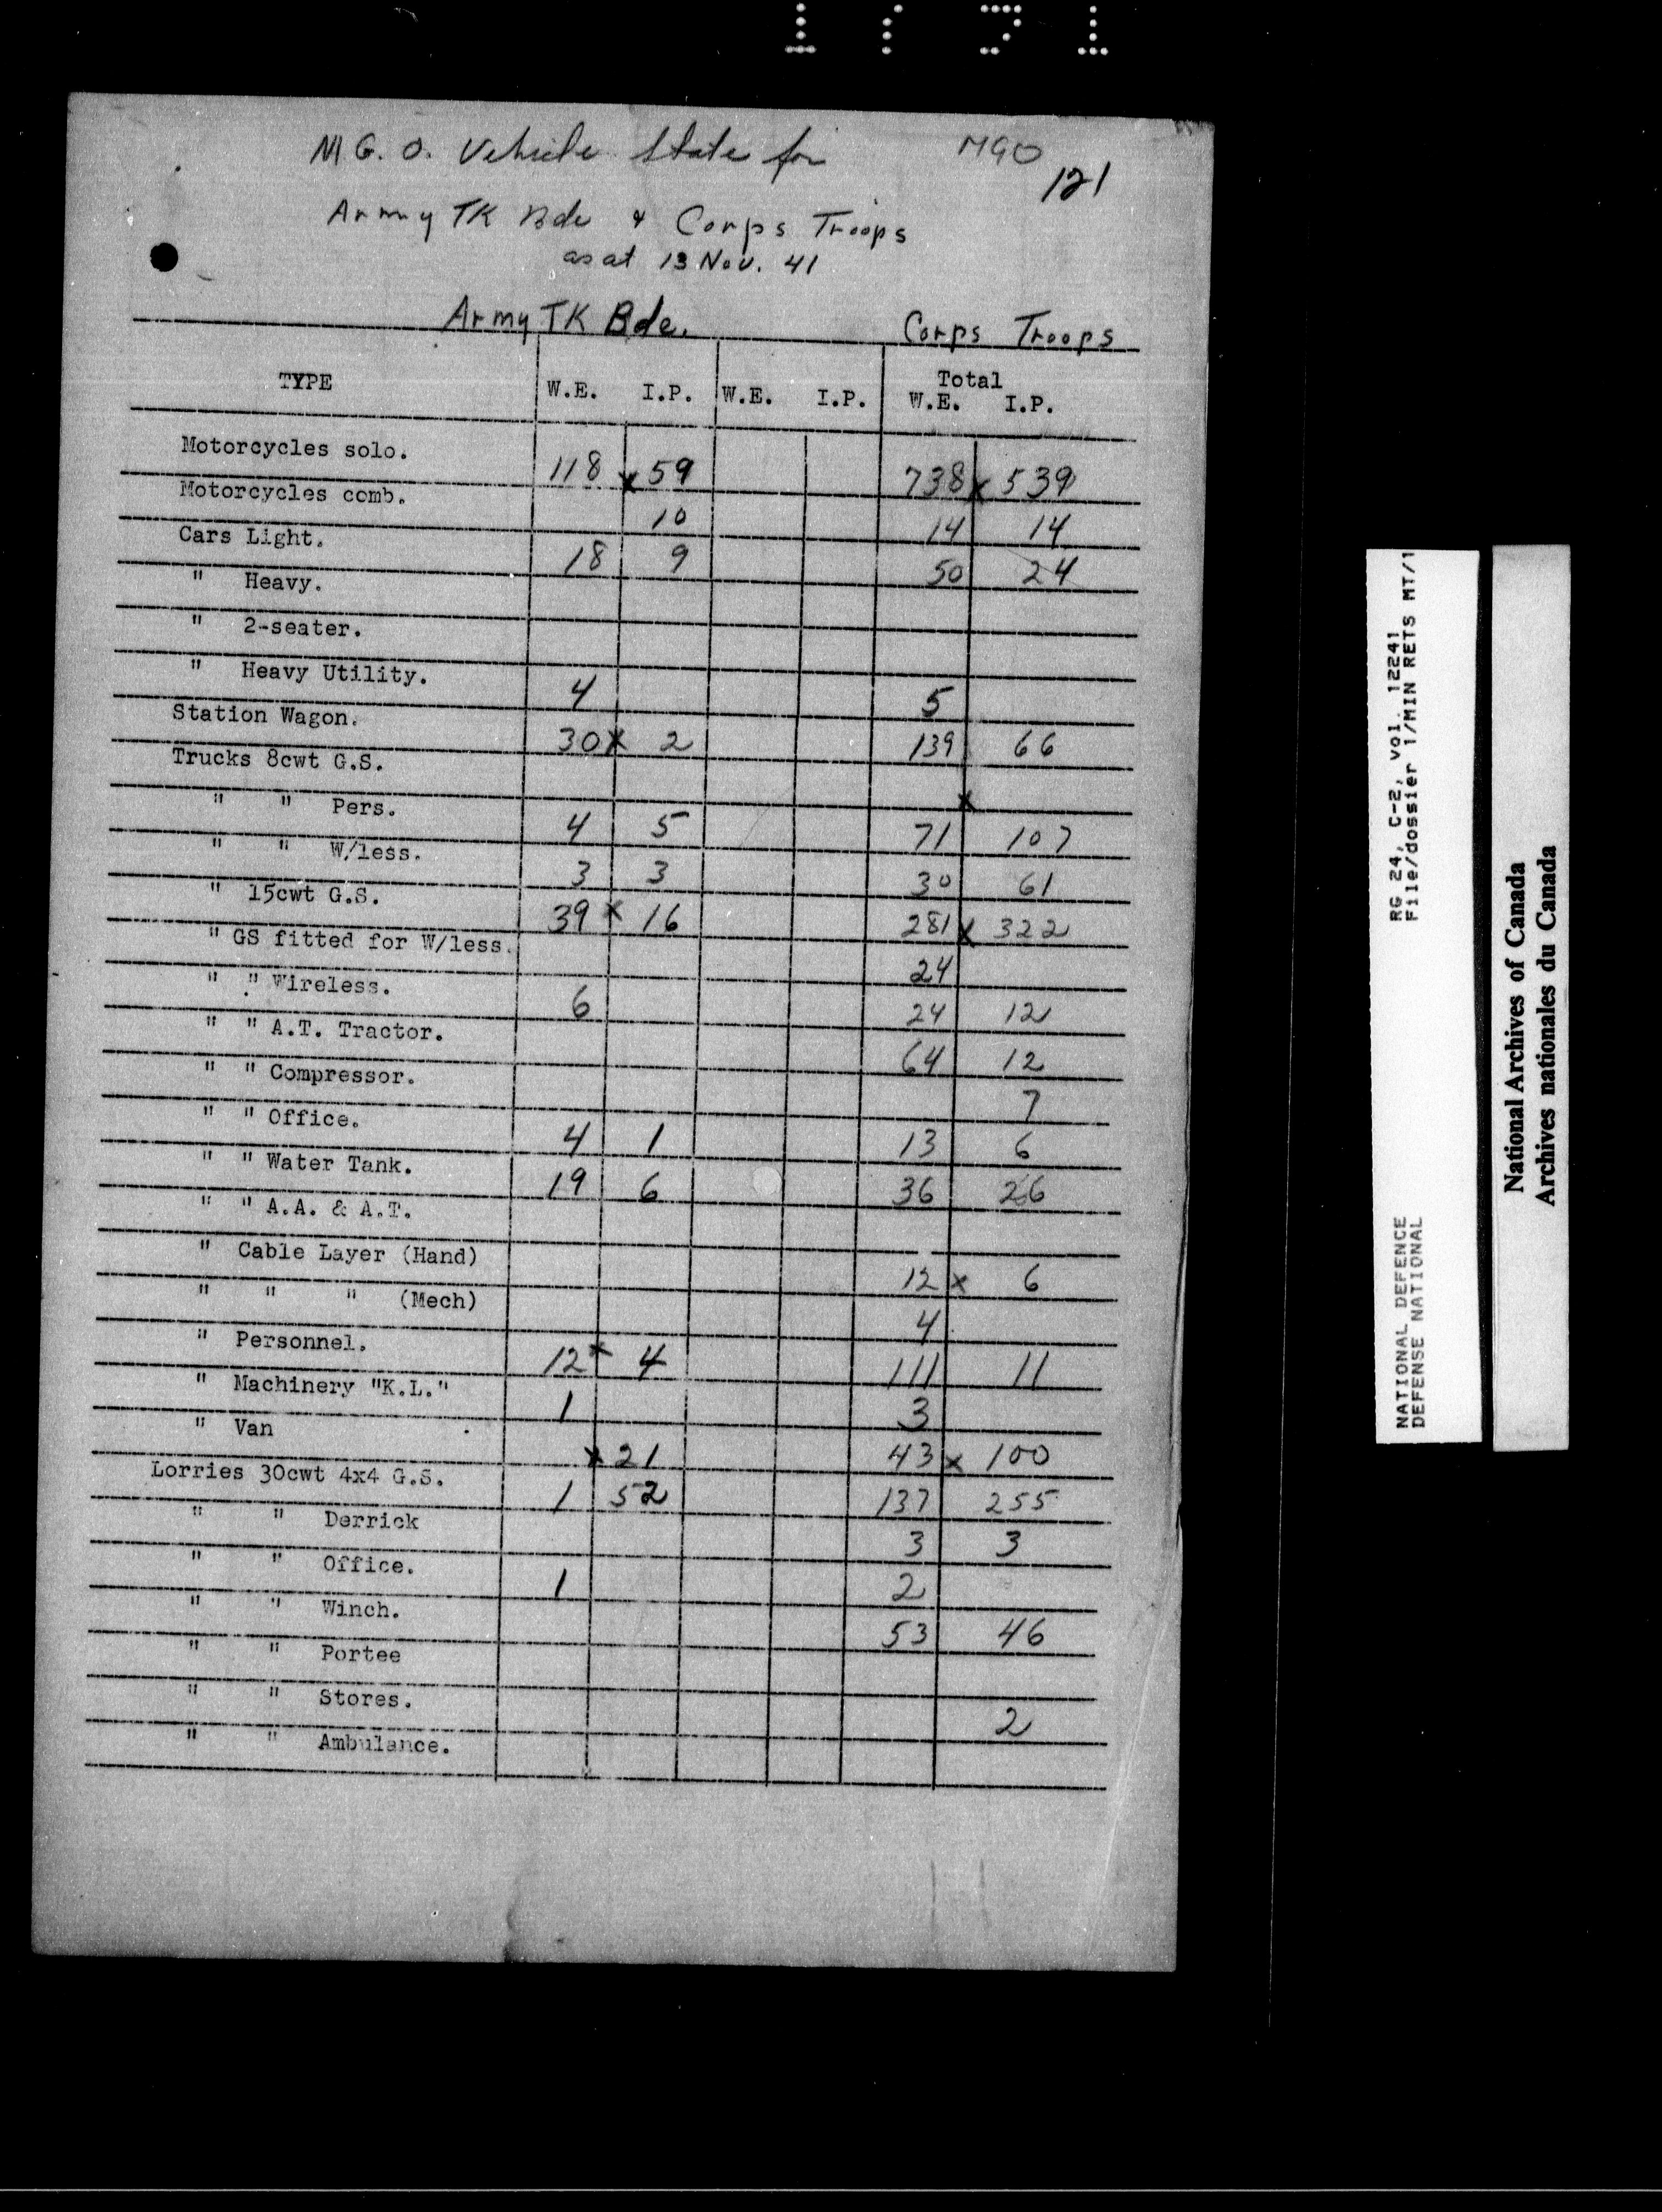 1 / 31
M.G.O. Vehicle State for MGO
121
Army TK Bde & Corps Troops
as at 13 Nov. 41
Army TK Bde. Corps Troops
TYPE W.E. I.P. W.E. I.P. Total W.E. I.P.
Motorcycles solo. 118 x 59 738 x 539
Motorcycles comb. 10 14 14
Cars Light. 18 9 50 24
" Heavy.
" 2-seater.
" Heavy Utility. 4 5
Station Wagon. 30 x 2 139 66
Trucks 8cwt G.S. x
" " Pers. 4 5 71 107
" " W/less. 3 3 30 61
" 15cwt G.S. 39 x 16 281 x 322
" GS fitted for W/less. 24
" " Wireless. 6 24 12
" " A.T. Tractor. 64 12
" " Compressor. 7
" " Office. 4 1 13 6
" " Water Tank. 19 6 36 26
" " A.A. & A.T.
" Cable Layer (Hand) 12 x 6
" " " (Mech) 4
" Personnel. 12 x 4 111 11
" Machinery "K.L." 1 3
" Van x 21 43 x 100
Lorries 30cwt 4x4 G.S. 1 52 137 255
" " Derrick 3 3
" " Office. 1 2
" " Winch. 53 46
" " Portee
" " Stores. 2
" " Ambulance.
NATIONAL DEFENCE RG 24, C-2, vol. 12241
DEFENSE NATIONAL File/dossier 1/MIN RETS MT/1
National Archives of Canada
Archives nationales du Canada